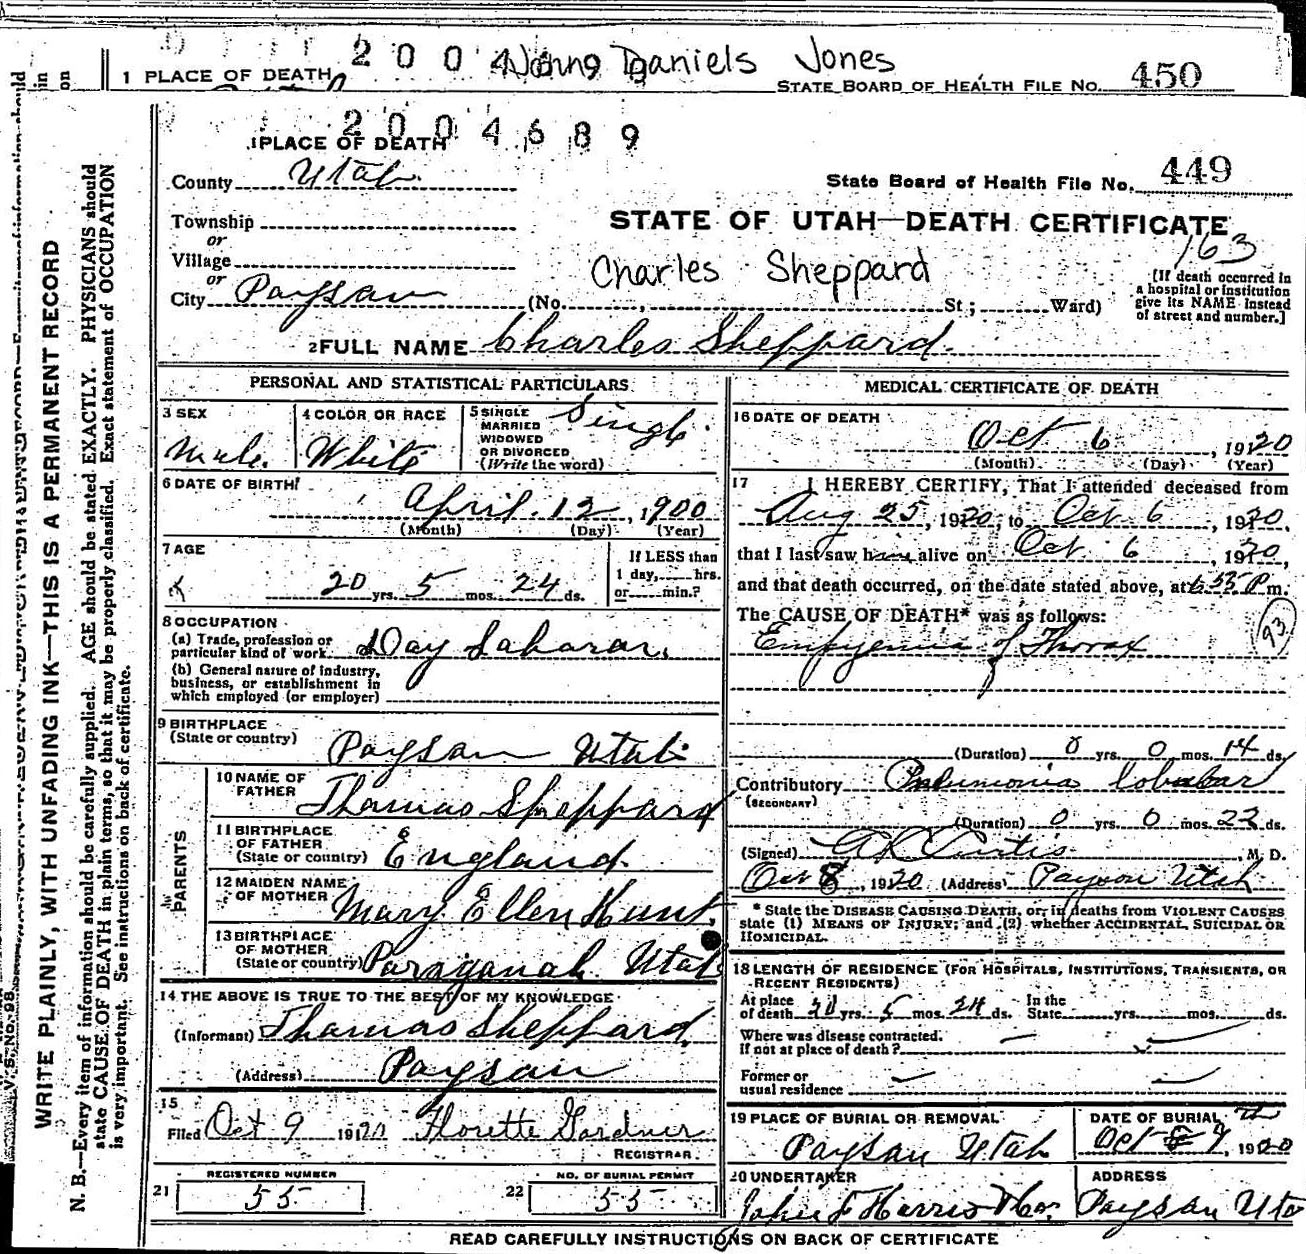 2 0 0 4 John Daniels Jones
1 PLACE OF DEATH
STATE BOARD OF HEALTH FILE NO. 450
2 0 0 4 6 8 9
1 PLACE OF DEATH
County Utah
State Board of Health File No. 449
Township
or
STATE OF UTAH—DEATH CERTIFICATE
163
Village
or
Charles Sheppard
City Paysan (No. St; Ward)
[If death occurred in
a hospital or institution
give its NAME instead
of street and number.]
2 FULL NAME Charles Sheppard.
PERSONAL AND STATISTICAL PARTICULARS
3 SEX
Male.
4 COLOR OR RACE
White
5 SINGLE
MARRIED
WIDOWED
OR DIVORCED
(Write the word)
Single
6 DATE OF BIRTH
April. 12, 1900
(Month) (Day) (Year)
7 AGE
20 yrs. 5 mos. 24 ds.
If LESS than
1 day, hrs.
or min.?
8 OCCUPATION
(a) Trade, profession or
particular kind of work. Day Labarar.
(b) General nature of industry,
business, or establishment in
which employed (or employer)
9 BIRTHPLACE
(State or country) Paysan Utah
PARENTS
10 NAME OF
FATHER Thomas Sheppard
11 BIRTHPLACE
OF FATHER
(State or country) England.
12 MAIDEN NAME
OF MOTHER Mary Ellen Hunt.
13 BIRTHPLACE
OF MOTHER
(State or country) Paraganah Utah
14 THE ABOVE IS TRUE TO THE BEST OF MY KNOWLEDGE
(Informant) Thomas Sheppard.
(Address) Paysan
15
Filed Oct 9 1920 Florette Gardner
REGISTRAR
REGISTERED NUMBER
21 55
NO. OF BURIAL PERMIT
22 55
MEDICAL CERTIFICATE OF DEATH
16 DATE OF DEATH
Oct 6, 1920
(Month) (Day) (Year)
17 I HEREBY CERTIFY, That I attended deceased from
Aug 25, 1920, to Oct 6, 1920,
that I last saw him alive on Oct 6, 1920,
and that death occurred, on the date stated above, at 6:55 P m.
The CAUSE OF DEATH* was as follows:
Empyemia of Thorax
93
(Duration) 0 yrs. 0 mos. 14 ds.
Contributory Pneumonia lobular
(SECONDARY)
(Duration) 0 yrs. 0 mos. 22 ds.
(Signed) A L Curtis, M. D.
Oct 8, 1920 (Address) Payson Utah
* State the DISEASE CAUSING DEATH, or, in deaths from VIOLENT CAUSES
state (1) MEANS OF INJURY; and (2) whether ACCIDENTAL, SUICIDAL OR
HOMICIDAL.
18 LENGTH OF RESIDENCE (FOR HOSPITALS, INSTITUTIONS, TRANSIENTS, OR
RECENT RESIDENTS)
At place
of death 20 yrs. 5 mos. 24 ds. In the
State yrs. mos. ds.
Where was disease contracted.
If not at place of death?
Former or
usual residence
19 PLACE OF BURIAL OR REMOVAL
Paysan Utah
DATE OF BURIAL
Oct 9, 1920
20 UNDERTAKER
John F Harris & Co.
ADDRESS
Paysan Uta
READ CAREFULLY INSTRUCTIONS ON BACK OF CERTIFICATE
WRITE PLAINLY, WITH UNFADING INK—THIS IS A PERMANENT RECORD
N. B.—Every item of information should be carefully supplied. AGE should be stated EXACTLY. PHYSICIANS should
state CAUSE OF DEATH in plain terms, so that it may be properly classified. Exact statement of OCCUPATION
is very important. See instructions on back of certificate.
V. S. No. 98